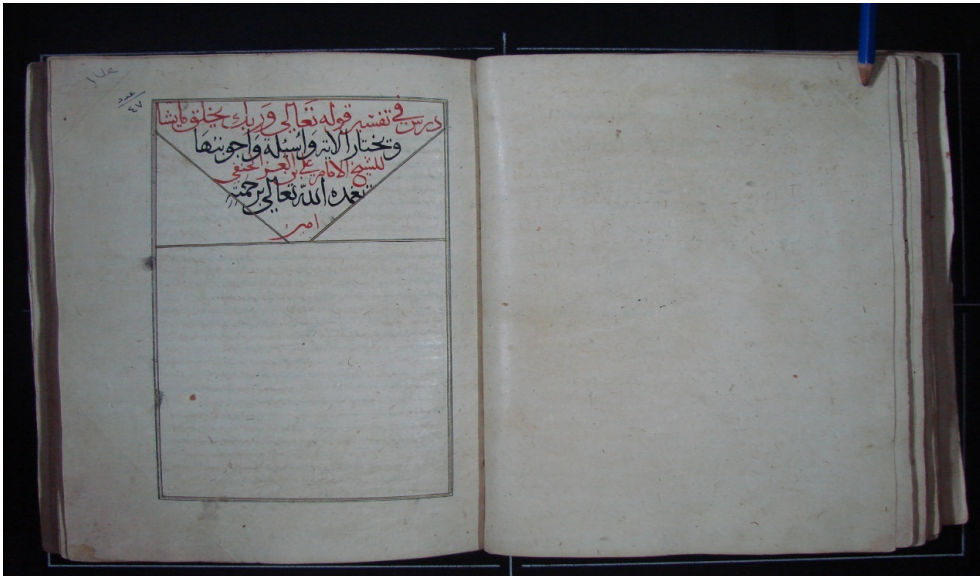 درس في تفسير قوله تعالى وربك يخلق ما يشا
ويختار الاية واسئلة واجوبتها
للشيخ الامام علي بن العز الحنفي
تغمده الله تعالى برحمته
امين
عدد
٤٧